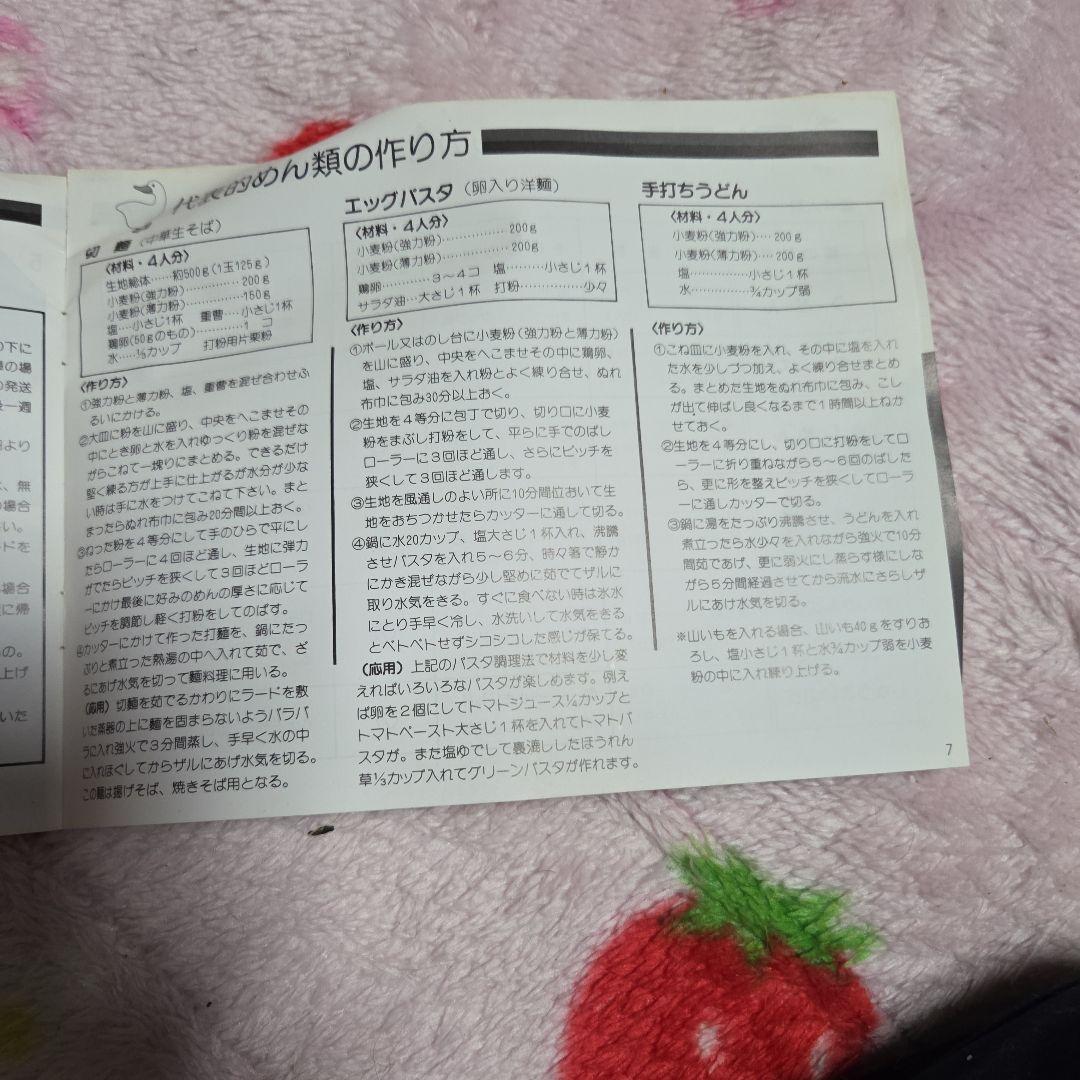 代表的めん類の作り方
切 麺（中華生そば）
〈材料・4人分〉
生地総体……約500g(1玉125g)
小麦粉(強力粉)…………… 200g
小麦粉(薄力粉)……………150g
塩…小さじ1杯 重曹…小さじ1杯
鶏卵(50gのもの)…………1 コ
水……⅓カップ 打粉用片栗粉
〈作り方〉
①強力粉と薄力粉、塩、重曹を混ぜ合わせふ
るいにかける。
②大皿に粉を山に盛り、中央をへこませその
中にとき卵と水を入れゆっくり粉を混ぜな
がらこねて一塊りにまとめる。できるだけ
堅く練る方が上手に仕上がるが水分が少な
い時は手に水をつけてこねて下さい。まと
まったらぬれ布巾に包み20分間以上おく。
③ねった粉を4等分にして手のひらで平にし
たらローラーに4回ほど通し、生地に弾力
がでたらピッチを狭くして3回ほどローラ
ーにかけ最後に好みのめんの厚さに応じて
ピッチを調節し軽く打粉をしてのばす。
④カッターにかけて作った打麺を、鍋にたっ
ぷりと煮立った熱湯の中へ入れて茹で、ざ
るにあげ水気を切って麺料理に用いる。
(応用) 切麺を茹でるかわりにラードを敷
いた蒸器の上に麺を固まらないようバラバ
ラに入れ強火で3分間蒸し、手早く水の中
に入れほぐしてからザルにあげ水気を切る。
この麺は揚げそば、焼きそば用となる。
エッグパスタ（卵入り洋麺）
〈材料・4人分〉
小麦粉(強力粉)…………… 200g
小麦粉(薄力粉)…………… 200g
鶏卵…………3～4コ 塩………小さじ1杯
サラダ油…大さじ1杯 打粉……………少々
〈作り方〉
①ボール又はのし台に小麦粉(強力粉と薄力粉)
を山に盛り、中央をへこませその中に鶏卵、
塩、サラダ油を入れ粉とよく練り合せ、ぬれ
布巾に包み30分以上おく。
②生地を4等分に包丁で切り、切り口に小麦
粉をまぶし打粉をして、平らに手でのばし
ローラーに3回ほど通し、さらにピッチを
狭くして3回ほど通します。
③生地を風通しのよい所に10分間位おいて生
地をおちつかせたらカッターに通して切る。
④鍋に水20カップ、塩大さじ1杯入れ、沸騰
させパスタを入れ5～6分、時々箸で静か
にかき混ぜながら少し堅めに茹でてザルに
取り水気をきる。すぐに食べない時は氷水
にとり手早く冷し、水洗いして水気をきる
とベトベトせずシコシコした感じが保てる。
(応用) 上記のパスタ調理法で材料を少し変
えればいろいろなパスタが楽しめます。例え
ば卵を2個にしてトマトジュース¼カップと
トマトペースト大さじ1杯を入れてトマトパ
スタが。また塩ゆでして裏漉ししたほうれん
草⅓カップ入れてグリーンパスタが作れます。
手打ちうどん
〈材料・4人分〉
小麦粉(強力粉)… 200g
小麦粉(薄力粉)… 200g
塩……………小さじ1杯
水……………¾カップ弱
〈作り方〉
①こね皿に小麦粉を入れ、その中に塩を入れ
た水を少しづつ加え、よく練り合せまとめ
る。まとめた生地をぬれ布巾に包み、こし
が出て伸ばし良くなるまで1時間以上ねか
せておく。
②生地を4等分にし、切り口に打粉をしてロ
ーラーに折り重ねながら5～6回のばした
ら、更に形を整えピッチを狭くしてローラ
ーに通しカッターで切る。
③鍋に湯をたっぷり沸騰させ、うどんを入れ
煮立ったら水少々を入れながら強火で10分
間茹であげ、更に弱火にし蒸らす様にしな
がら5分間経過させてから流水にさらしザ
ルにあけ水気を切る。
※山いもを入れる場合、山いも40gをすりお
ろし、塩小さじ1杯と水¾カップ弱を小麦
粉の中に入れ練り上げる。
7